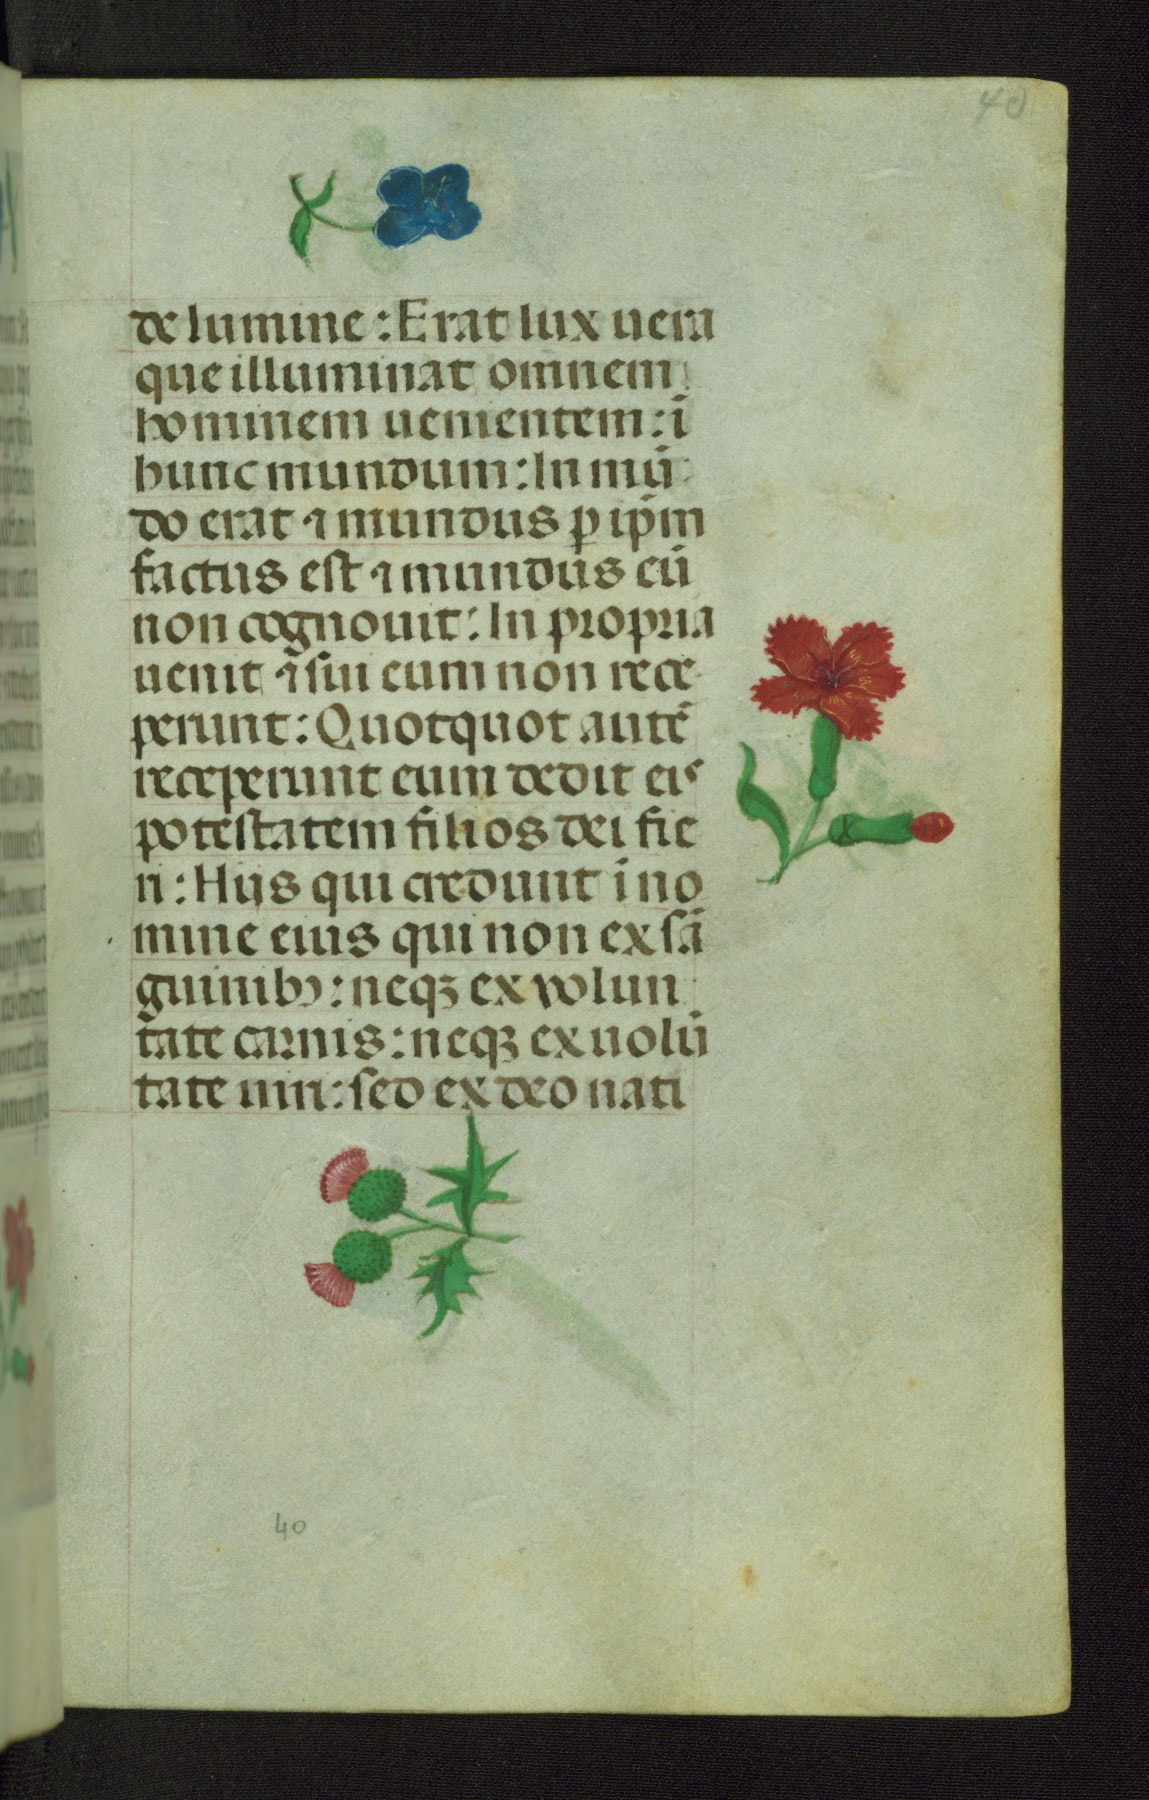 40
de lumine : Erat lux uera
que illuminat omnem
hominem uenientem : ī
hunc mundum : In mū
do erat ⁊ mundus ꝑ ip̄m
factus est ⁊ mundus eū
non cognouit : In propria
uenit ⁊ sui eum non rece
perunt : Quotquot autē
receperunt eum dedit eis
potestatem filios dei fie
ri : Hijs qui credunt ī no
mine eius qui non ex sā
guinibꝯ : neqꝫ ex volun
tate carnis : neqꝫ ex uolū
tate uiri : sed ex deo nati
40